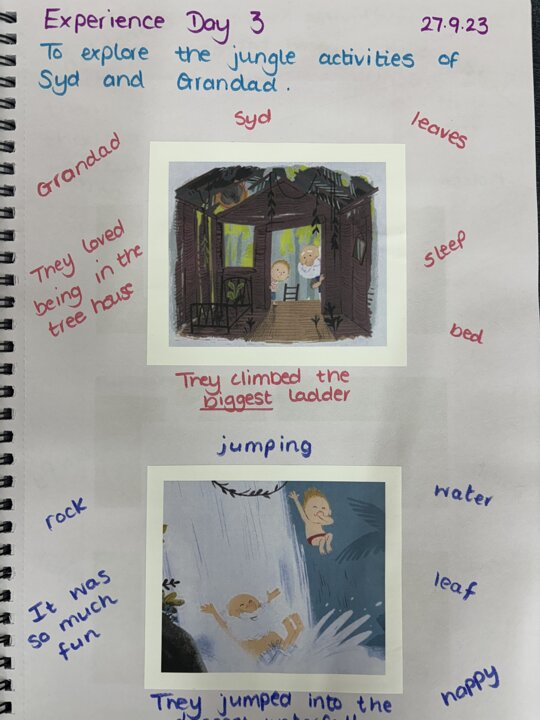 Experience Day 3
27.9.23
To explore the jungle activities of
Syd and Grandad.
Syd
leaves
Grandad
They loved
being in the
tree house
sleep
bed
They climbed the
biggest ladder
jumping
rock
water
It was
so much
fun
leaf
nappy
They jumped into the